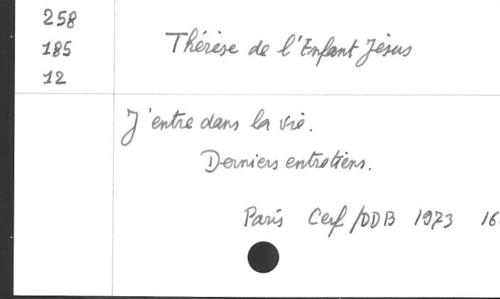 258
185
12
Thérèse de l'Enfant Jésus
J'entre dans la vie.
Derniers entretiens.
Paris Cerf/DDB 1973 16